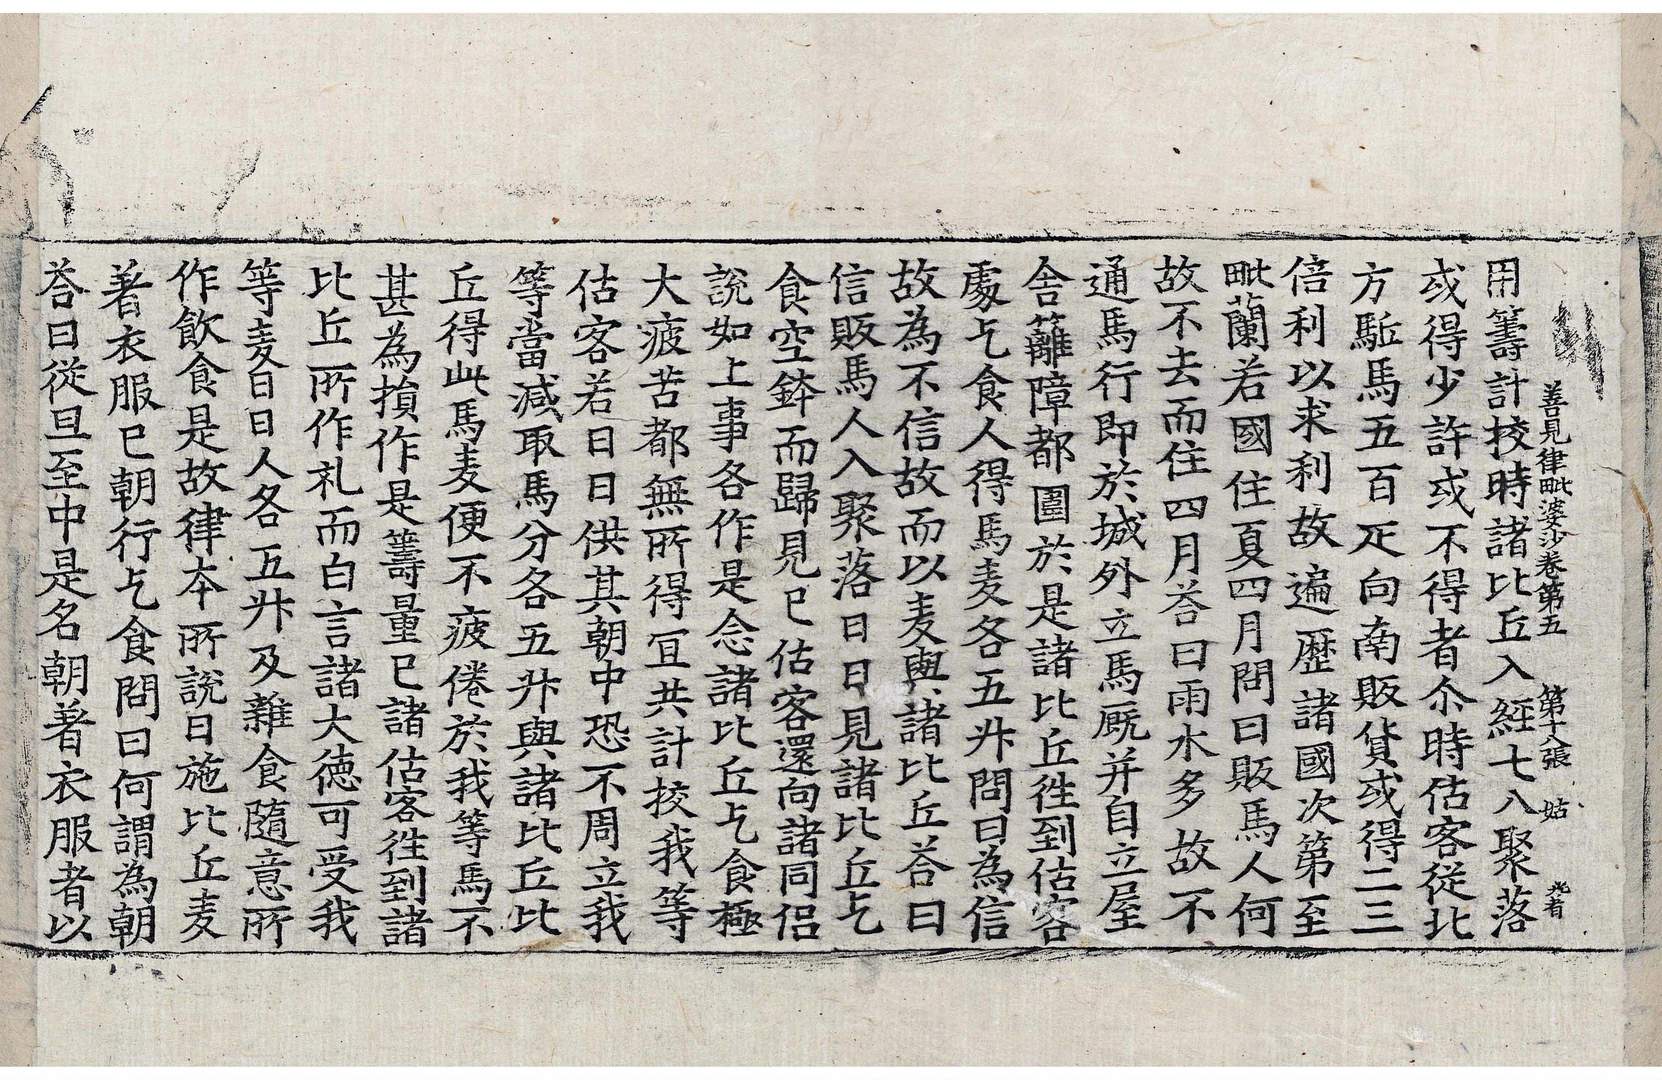 善見律毗婆沙卷第五 第十八張 姑
用籌計挍時諸比丘入經七八聚落
或得少許或不得者尒時估客從北
方駈馬五百疋向南販貨或得二三
倍利以求利故遍歷諸國次第至
毗蘭若國住夏四月問曰販馬人何
故不去而住四月荅曰雨水多故不
通馬行即於城外立馬廐并自立屋
舍籬障都圍於是諸比丘徃到估客
處乞食人得馬麦各五升問曰為信
故為不信故而以麦與諸比丘荅曰
信販馬人入聚落日日見諸比丘乞
食空鉢而歸見已估客還向諸同侣
說如上事各作是念諸比丘乞食極
大疲苦都無所得冝共計挍我等
估客若日日供其朝中恐不周立我
等當減取馬分各五升與諸比丘比
丘得此馬麦便不疲倦於我等馬不
甚為損作是籌量已諸估客徃到諸
比丘所作礼而白言諸大德可受我
等麦日日人各五升及雜食隨意所
作飲食是故律夲所說日施比丘麦
著衣服已朝行乞食問曰何謂為朝
荅曰從旦至中是名朝著衣服者以